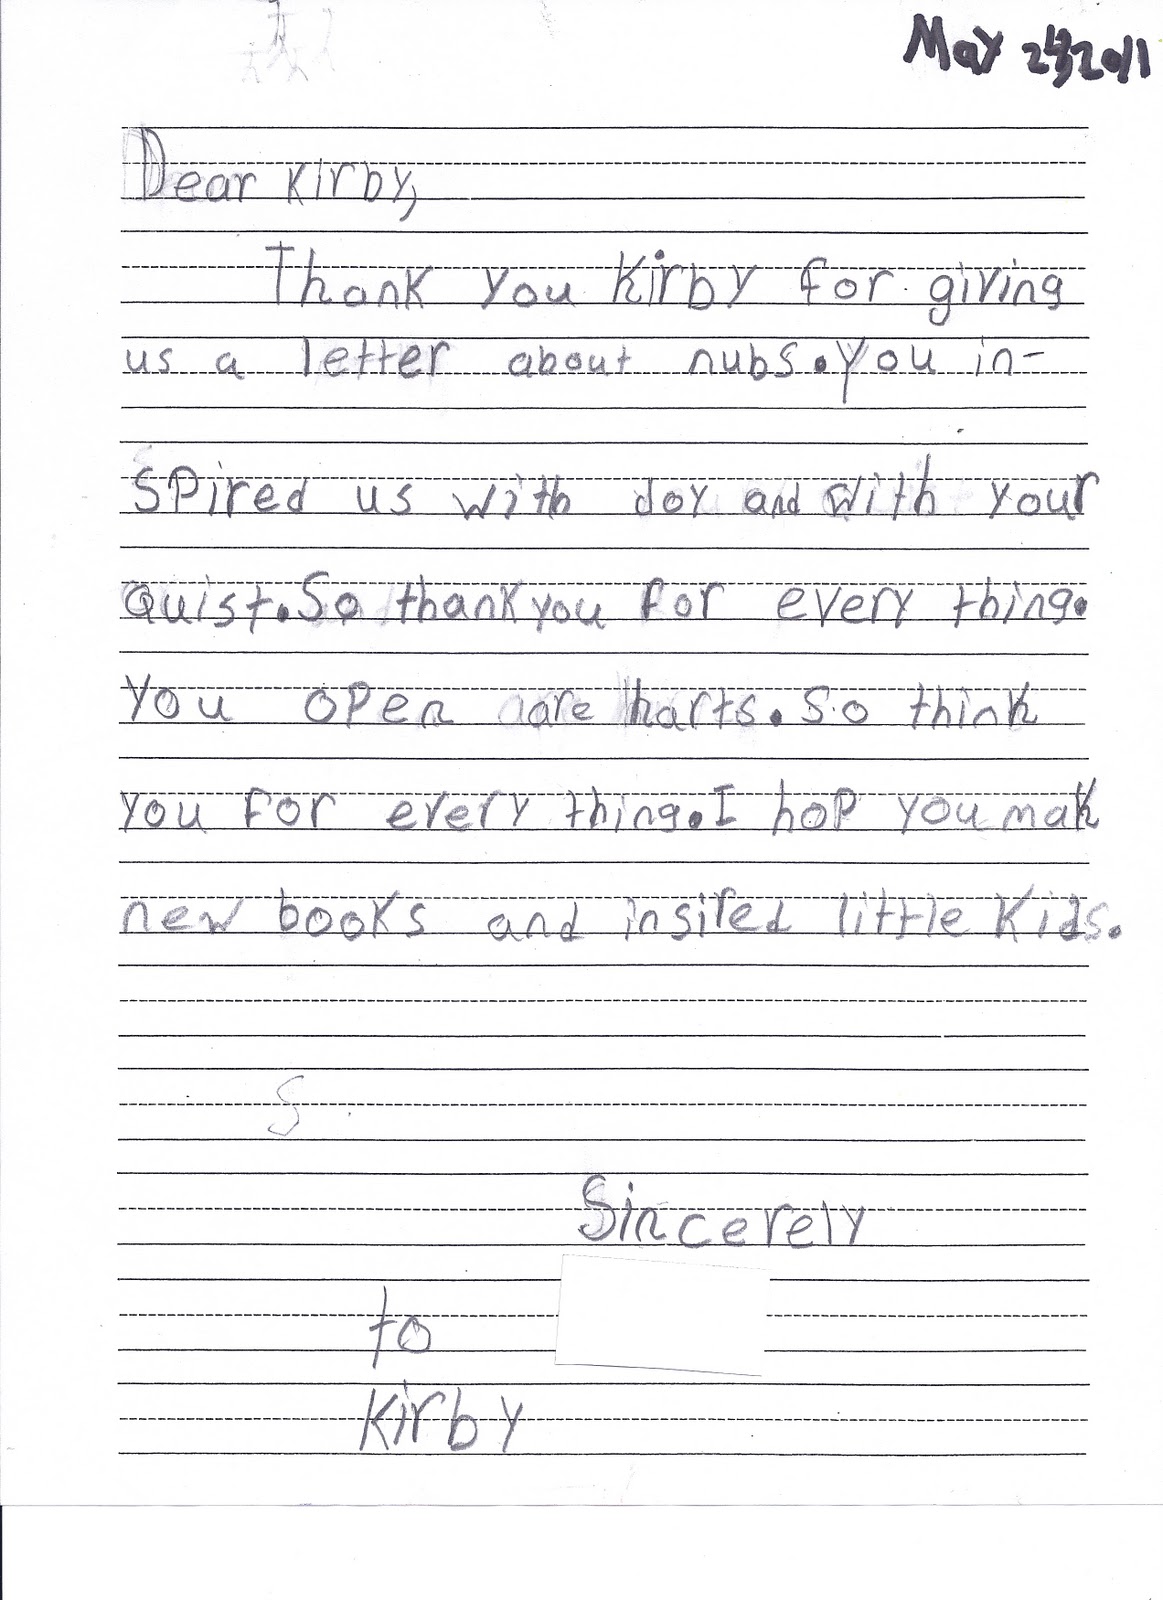 May 24, 2011
Dear Kirby,
Thank you Kirby for giving
us a letter about nubs. You in-
spired us with joy and with your
quist. So thank you for every thing.
You open are harts. So think
you for every thing. I hop you mak
new books and insired little kids.
S
Sincerely
to
Kirby